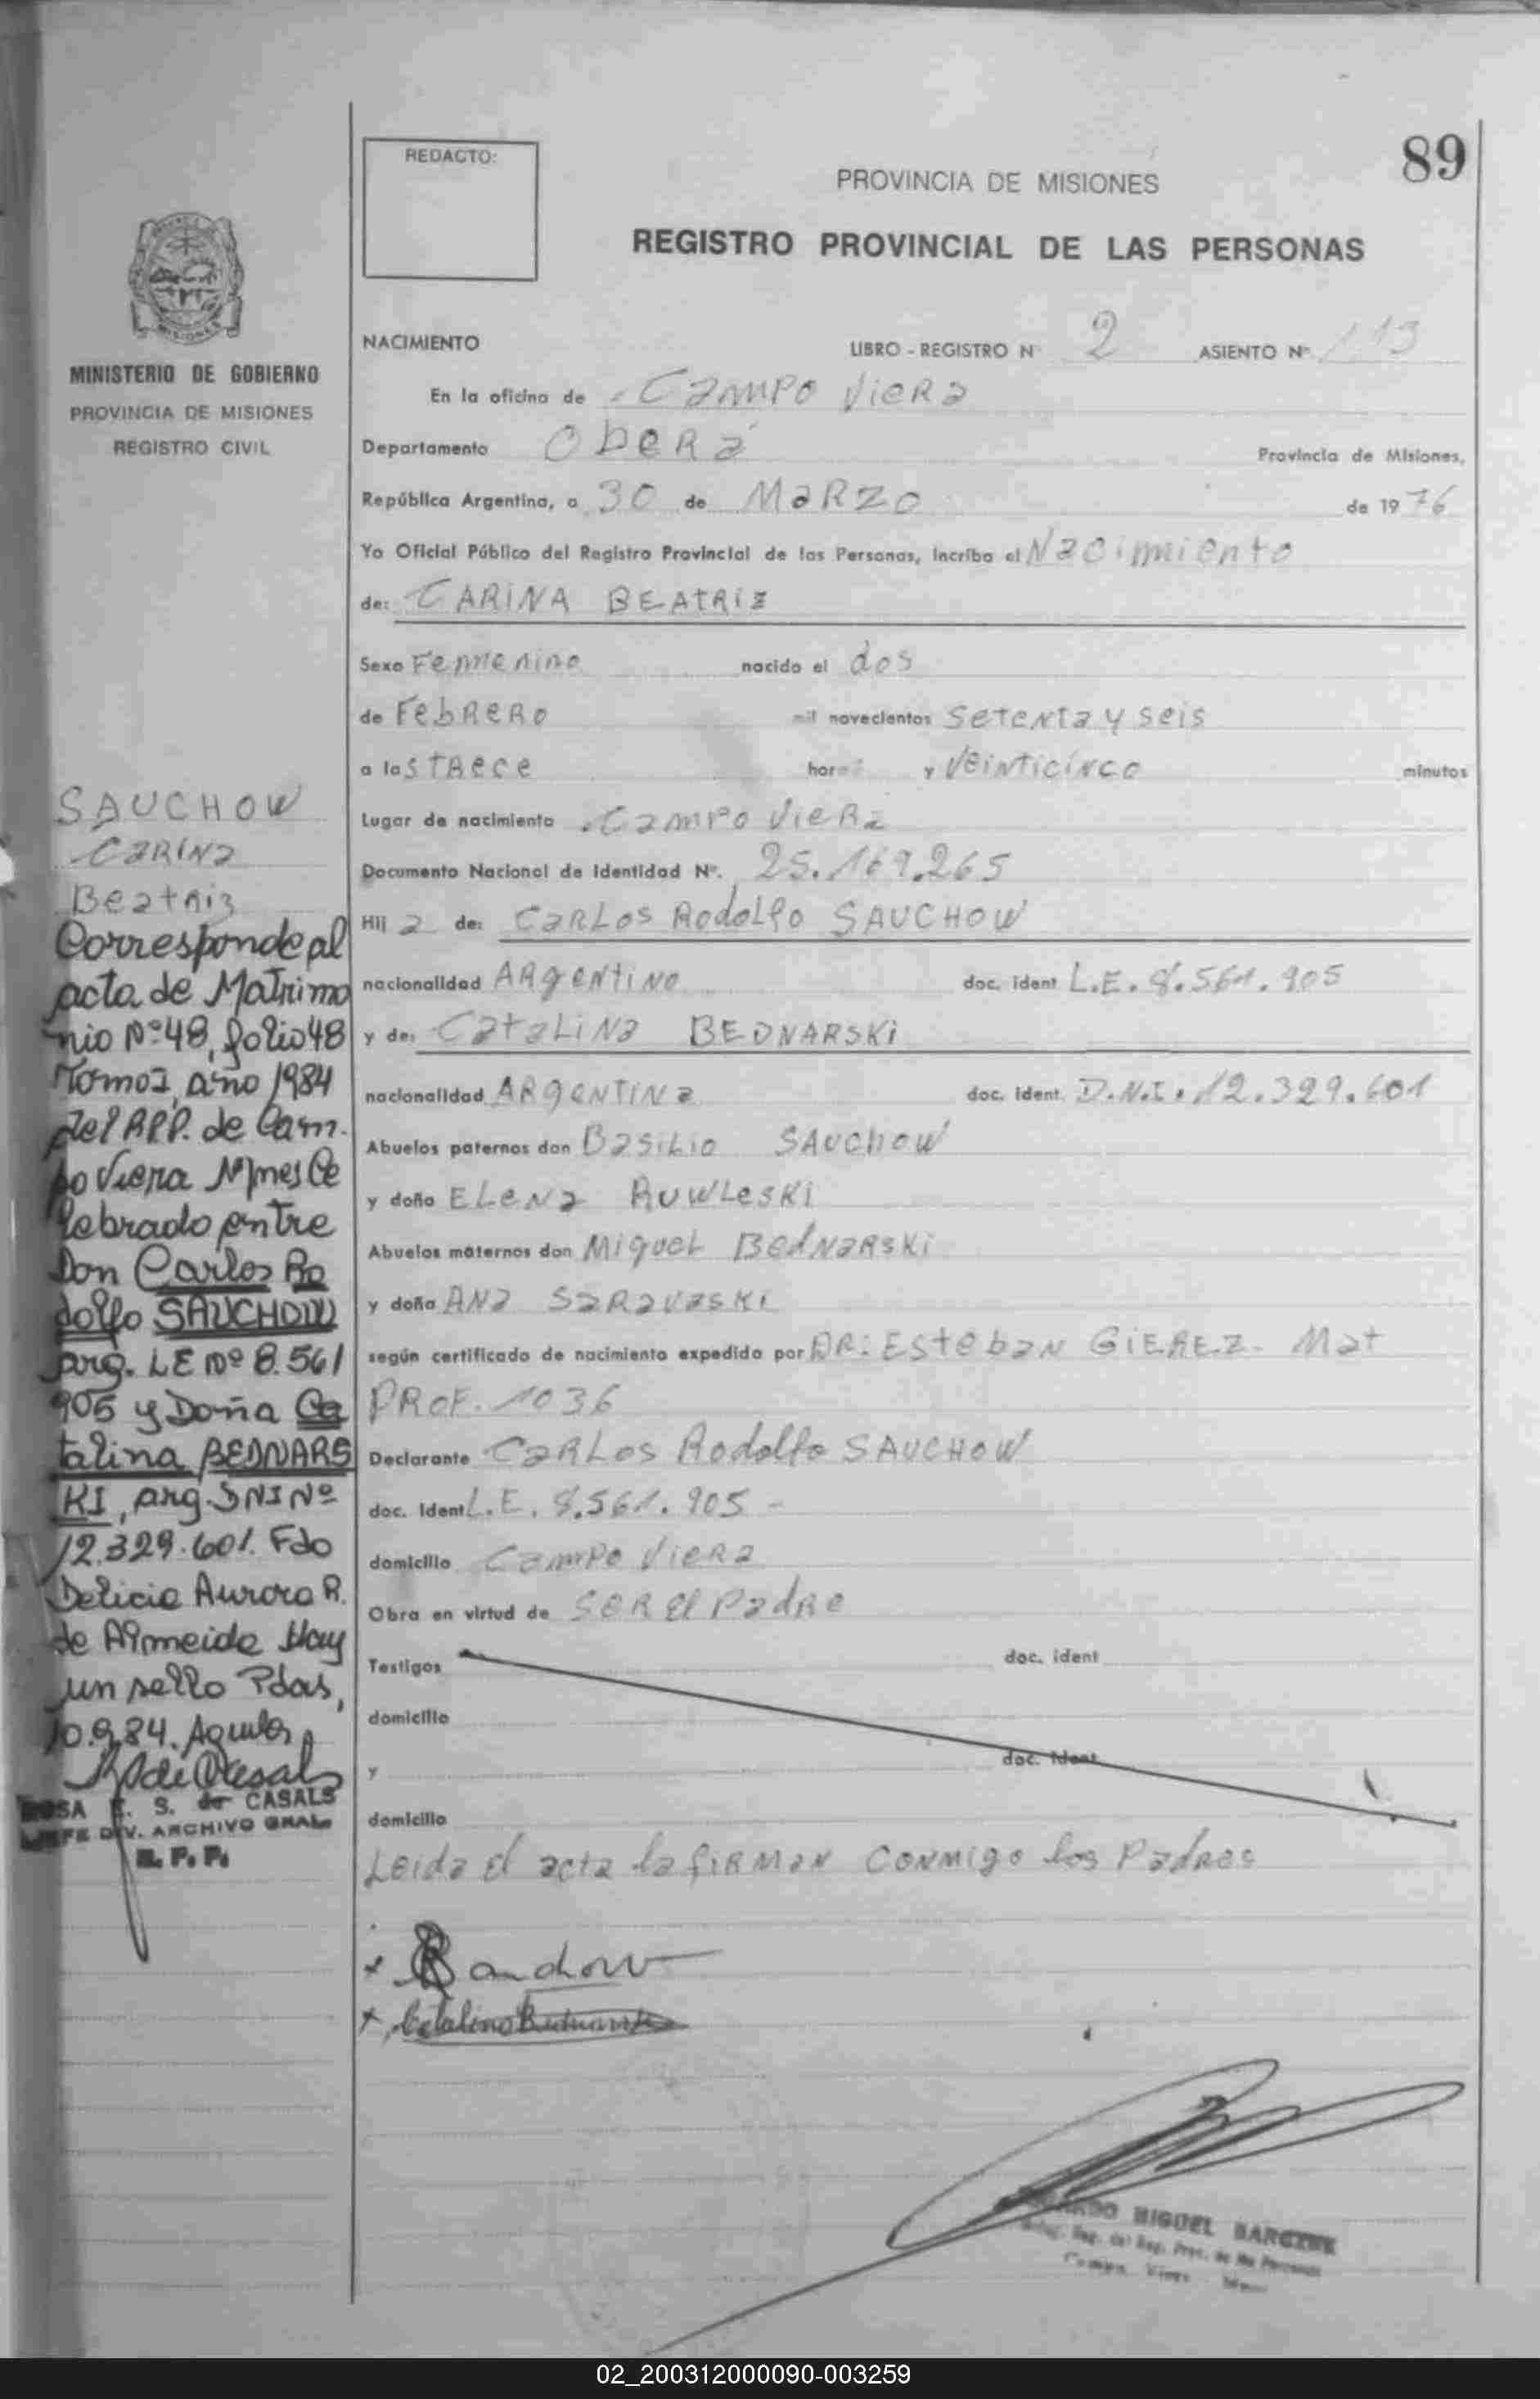 89
REDACTO:
PROVINCIA DE MISIONES
REGISTRO PROVINCIAL DE LAS PERSONAS
MINISTERIO DE GOBIERNO
PROVINCIA DE MISIONES
REGISTRO CIVIL
NACIMIENTO LIBRO - REGISTRO Nº 2 ASIENTO Nº 113
En la oficina de CAMPO VIERA
Departamento OBERÁ Provincia de Misiones,
República Argentina, a 30 de MARZO de 1976
Yo Oficial Público del Registro Provincial de las Personas, Inscribo el Nacimiento
de: CARINA BEATRIZ
Sexo Femenino nacido el dos
de Febrero mil novecientos setenta y seis
a las trece horas y veinticinco minutos
Lugar de nacimiento Campo Viera
Documento Nacional de Identidad Nº. 25.169.265
Hij a de: CARLOS Rodolfo SAUCHOW
nacionalidad Argentino doc. ident L.E. 8.561.905
y de: Catalina BEDNARSKI
nacionalidad ARgentina doc. ident. D.N.I. 12.329.601
Abuelos paternos don Basilio SAUCHOW
y doña Elena RUWLESKI
Abuelos maternos don Miguel BEDNARSKI
y doña ANA SARAVASKI
según certificado de nacimiento expedido por DR: Esteban GIEREZ - Mat
PROF. 1036
Declarante CARLOS Rodolfo SAUCHOW
doc. ident L.E. 8.561.905 -
domicilio Campo Viera
Obra en virtud de SER El Padre
Testigos doc. ident
domicilio
y doc. ident
domicilio
Leida el acta la firman conmigo los Padres
SAUCHOW
Carina
Beatriz
Corresponde al
acta de Matrimo
nio Nº 48, folio 48
Tomo I, año 1984
del RPP. de Cam-
po Viera Mnes Ce
lebrado entre
Don Carlos Ro
dolfo SAUCHOW
arg. LE Nº 8.561
905 y Doña Ca
talina BEDNARS
KI, arg. DNI Nº
12.329.601. Fdo
Delicia Aurora R.
de Almeida Hay
un sello Pdas,
10.9.84.
ROSA E. S. de CASALS
JEFE DIV. ARCHIVO GRAL
R. P. P.
Sauchow
Catalina Bednarski
MIGUEL
02_200312000090-003259